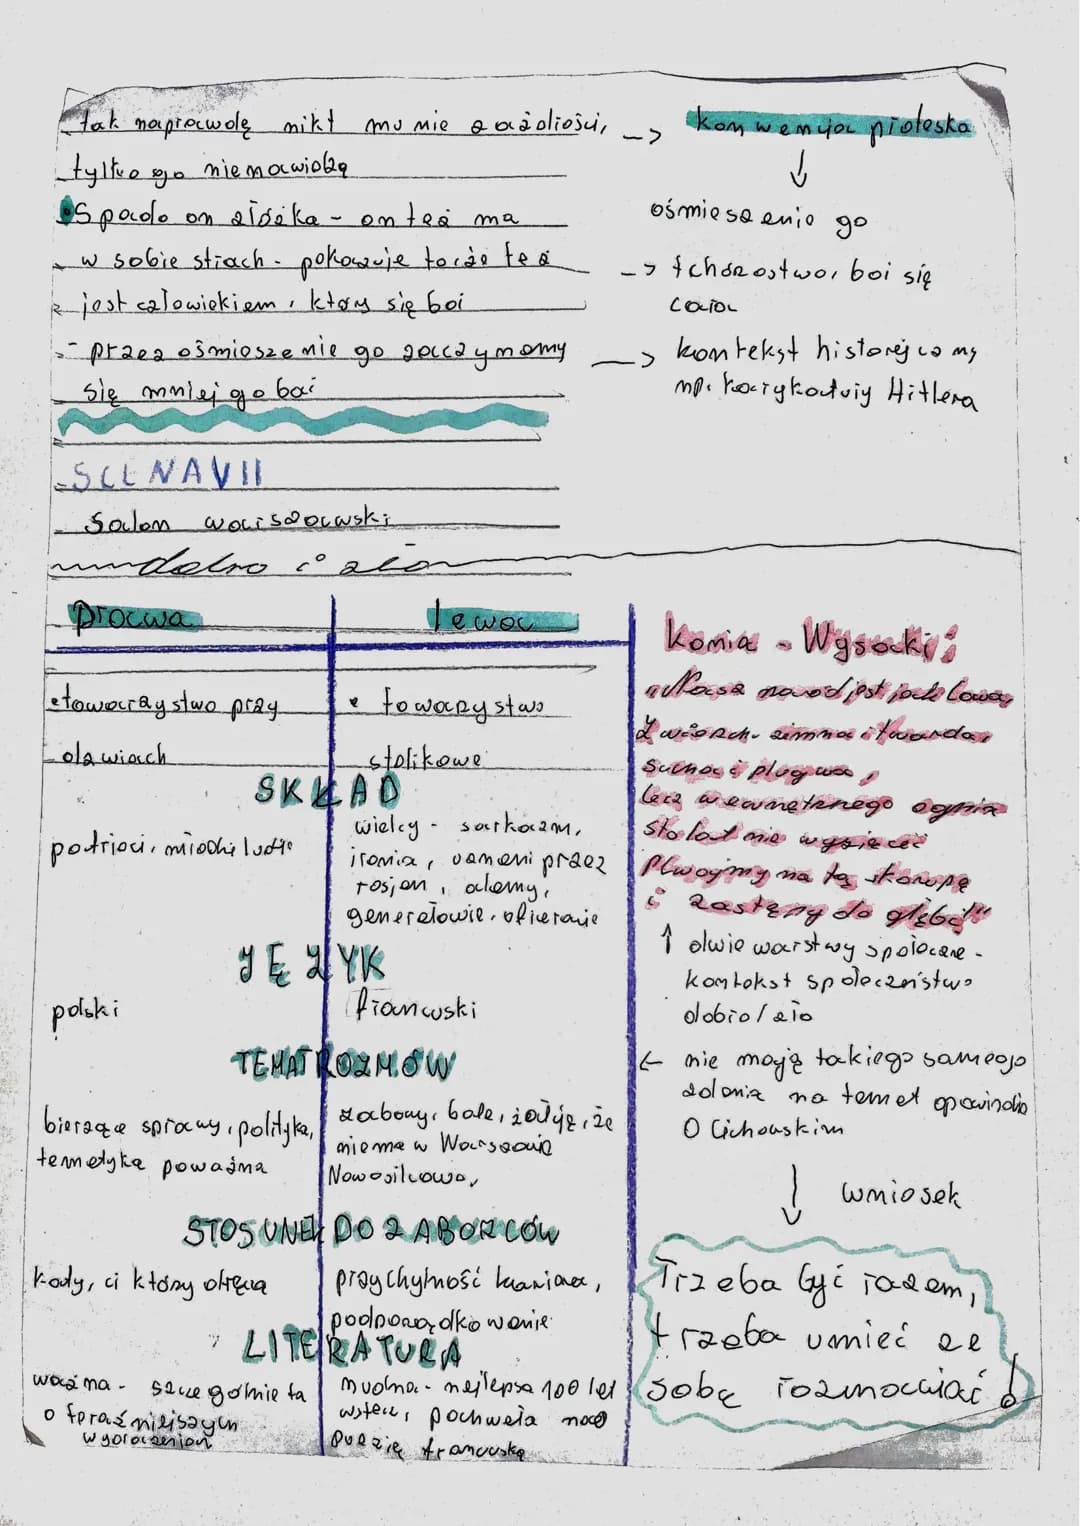 tak naprawdę nikt mu nie zazdrości,
tylko go nienawidzą
• Spada on z łóżka - on też ma
w sobie strach - pokazuje to że też
jest człowiekiem, który się boi
- przez ośmieszenie go zaczynamy
się mniej go bać
-> konwencja groteska
↓
ośmieszenie go
-> tchórzostwo, boi się
cara
-> kontekst historyczny
np. karykatury Hitlera
SCENA VII
Salon warszawski
dobro i zło
prawa
lewa
• towarzystwo przy
drzwiach
• towarzystwo
stolikowe
SKŁAD
patrioci, młodzi ludzie
wielcy - sarkazm,
ironia, uznani przez
rosjan, damy,
generałowie, oficerowie
JĘZYK
polski
francuski
TEMAT ROZMÓW
bieżące sprawy, polityka,
tematyka poważna
zabawy, bale, żałują, że
nie ma w Warszawie
Nowosilcowa,
STOSUNEK DO ZABORCÓW
przychylność kariera,
podporządkowanie
LITERATURA
ważna - szczególnie ta
o teraźniejszych
wydarzeniach
nudna - najlepsza 100 lat
wstecz, pochwała nad
poezją francuską
Konia - Wysocki:
"Nasz naród jest jak lawa,
Z wierzchu zimna i twarda,
sucha i plugawa,
lecz wewnętrznego ognia
sto lat nie wyziębi
Plwajmy na tą skorupę
i zastąpmy do głębi"
↑ dwie warstwy społeczne -
kontekst społeczeństwa
dobro/zło
← nie mają takiego samego
zdania na temat opowiadania
O Cichowskim
↓ wniosek
Trzeba być razem,
trzeba umieć ze
sobą rozmawiać!